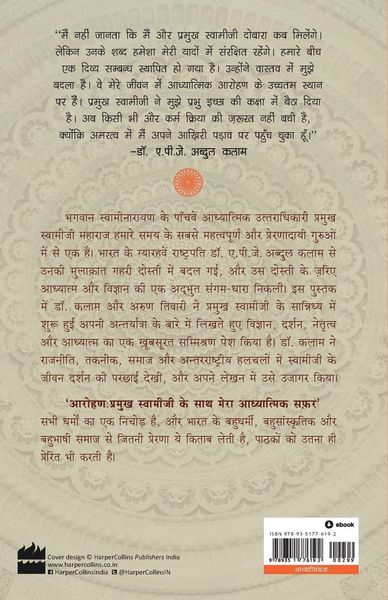 “मैं नहीं जानता कि मैं और प्रमुख स्वामीजी दोबारा कब मिलेंगे।
लेकिन उनके शब्द हमेशा मेरी यादों में संरक्षित रहेंगे। हमारे बीच
एक दिव्य सम्बन्ध स्थापित हो गया है। उन्होंने वास्तव में मुझे
बदला है। वे मेरे जीवन में आध्यात्मिक आरोहण के उच्चतम स्थान
पर हैं। प्रमुख स्वामीजी ने मुझे प्रभु इच्छा की कक्षा में बैठा दिया
है। अब किसी भी और कर्म क्रिया की ज़रूरत नहीं बची है,
क्योंकि अमरत्व में मैं अपने आख़िरी पड़ाव पर पहुँच चुका हूँ।”
–डॉ. ए.पी.जे. अब्दुल कलाम
भगवान स्वामीनारायण के पाँचवें आध्यात्मिक उत्तराधिकारी प्रमुख
स्वामीजी महाराज हमारे समय के सबसे महत्वपूर्ण और प्रेरणादायी गुरुओं
में से एक है। भारत के ग्यारहवें राष्ट्रपति डॉ. ए.पी.जे. अब्दुल कलाम से
उनकी मुलाक़ात गहरी दोस्ती में बदल गई, और उस दोस्ती के ज़रिए
आध्यात्म और विज्ञान की एक अद्भुत संगम-धारा निकली। इस पुस्तक
में डॉ. कलाम और अरुण तिवारी ने प्रमुख स्वामीजी के सान्निध्य में
शुरू हुई अपनी अन्तर्यात्रा के बारे में लिखते हुए विज्ञान, दर्शन, नेतृत्व
और आध्यात्म का एक ख़ूबसूरत सम्मिश्रण पेश किया है। डॉ. कलाम ने
राजनीति, तकनीक, समाज और अन्तरराष्ट्रीय हलचलों में स्वामीजी के
जीवन दर्शन की परछाई देखी, और अपने लेखन में उसे उजागर किया।
‘आरोहण:प्रमुख स्वामीजी के साथ मेरा आध्यात्मिक सफ़र’
सभी धर्मों का एक निचोड़ है, और भारत के बहुधर्मी, बहुसांस्कृतिक और
बहुभाषी समाज से जितनी प्रेरणा ये किताब लेती है, पाठकों को उतना ही
प्रेरित भी करती है।
ebook
ISBN 978-93-5177-619-2
9 789351 776192
00299
आध्यात्मिकता
Cover design © HarperCollins Publishers India
www.harpercollins.co.in
HarperCollinsIndia @HarperCollinsIN